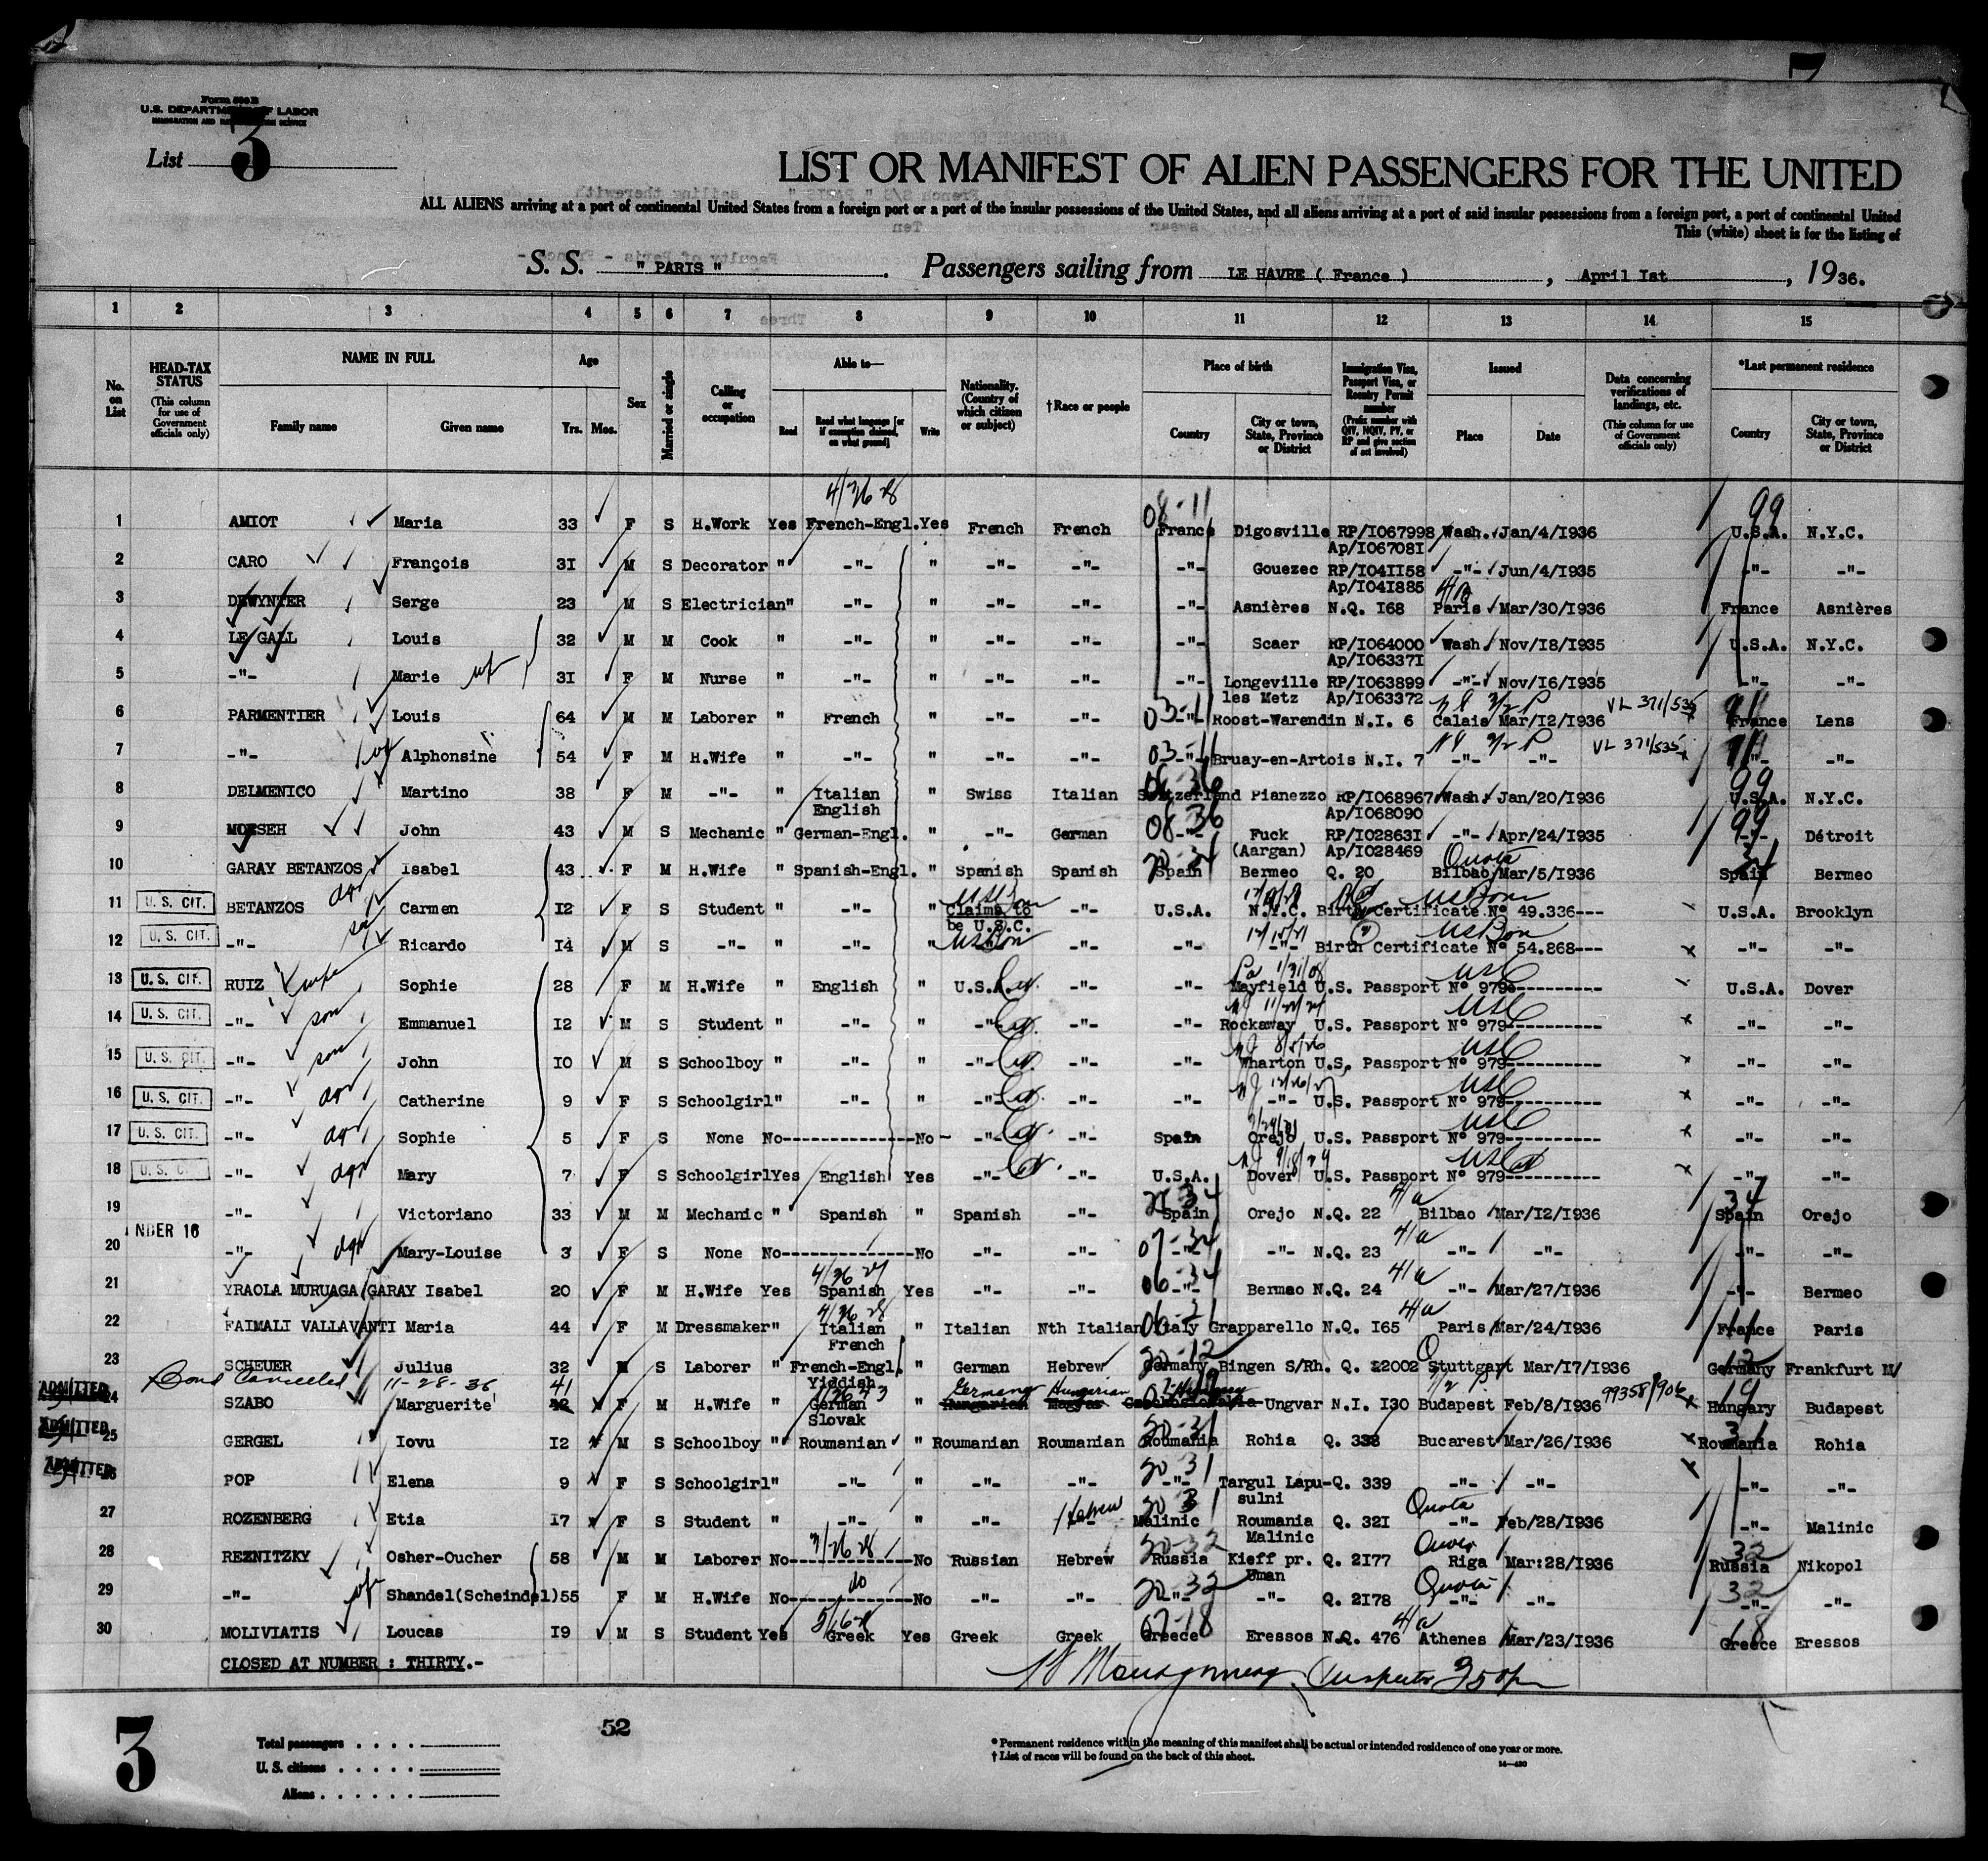 Form 500 B
U.S. DEPARTMENT OF LABOR
IMMIGRATION AND NATURALIZATION SERVICE
List 3
LIST OR MANIFEST OF ALIEN PASSENGERS FOR THE UNITED
ALL ALIENS arriving at a port of continental United States from a foreign port or a port of the insular possessions of the United States, and all aliens arriving at a port of said insular possessions from a foreign port, a port of continental United
This (white) sheet is for the listing of
S. S. " PARIS " . Passengers sailing from LE HAVRE ( France ) , April Ist , 1936.
1 2 3 4 5 6 7 8 9 10 11 12 13 14 15
No. on List
HEAD-TAX STATUS (This column for use of Government officials only)
NAME IN FULL Family name Given name
Age Yrs. Mos.
Sex
Married or single
Calling or occupation
Able to— Read Read what language [or if exemption claimed, on what ground] Write
Nationality. (Country of which citizen or subject)
†Race or people
Place of birth Country City or town, State, Province or District
Immigration Visa, Passport Visa, or Reentry Permit number (Prefix number with QIV, NQIV, PV, or RP and give section of act involved)
Issued Place Date
Data concerning verifications of landings, etc. (This column for use of Government officials only)
*Last permanent residence Country City or town, State, Province or District
4/36 28
08-11 99
1 AMIOT Maria 33 F S H.Work Yes French-Engl. Yes French French France Digosville RP/I067998 Wash. Jan/4/I936 U.S.A. N.Y.C.
Ap/I06708I
2 CARO François 3I M S Decorator " -"- " -"- -"- -"- Gouezec RP/I04II58 -"- Jun/4/I935 -"- -"-
Ap/I04I885
3 DEWYNTER Serge 23 M S Electrician " -"- " -"- -"- -"- Asnières N.Q. I68 Paris Mar/30/I936 France Asnières
4 LE GALL Louis 32 M M Cook " -"- " -"- -"- -"- Scaer RP/I064000 Wash. Nov/I8/I935 U.S.A. N.Y.C.
Ap/I06337I
5 -"- Marie wf 3I F M Nurse " -"- " -"- -"- -"- Longeville les Metz RP/I063899 -"- Nov/I6/I935 -"- -"-
Ap/I063372
6 PARMENTIER Louis 64 M M Laborer " French " -"- -"- 03-11 -"- Roost-Warendin N.I. 6 Calais Mar/I2/I936 VL 371/535 France Lens
7 -"- wf Alphonsine 54 F M H.Wife " -"- " -"- -"- 03-11 -"- Bruay-en-Artois N.I. 7 -"- -"- VL 371/535 -"- -"-
8 DELMENICO Martino 38 F M -"- " Italian English " Swiss Italian Switzerland Pianezzo RP/I068967 Wash. Jan/20/I936 99 U.S.A. N.Y.C.
Ap/I068090
9 MOESEH John 43 M S Mechanic " German-Engl. " -"- German 08-36 -"- Fuck (Aargan) RP/I02863I -"- Apr/24/I935 99 -"- Détroit
Ap/I028469
10 GARAY BETANZOS Isabel 43 F M H.Wife " Spanish-Engl. " Spanish Spanish Spain Bermeo Q. 20 Quota Bilbao Mar/5/I936 Spain Bermeo
11 U. S. CIT. BETANZOS dgr Carmen I2 F S Student " -"- " Claims to be U.S.C. US Born -"- U.S.A. N.Y.C. Birth Certificate N° 49.336--- US Born U.S.A. Brooklyn
12 U. S. CIT. -"- Ricardo I4 M S -"- " -"- " US Born -"- -"- -"- -"- Birth Certificate N° 54.868--- US Born -"- -"-
13 U. S. CIT. RUIZ wife Sophie 28 F M H.Wife " English " U.S.A. -"- -"- Pa 1/31/08 Mayfield U.S. Passport N° 979---------- USC U.S.A. Dover
14 U. S. CIT. -"- son Emmanuel I2 M S Student " -"- " -"- -"- -"- Rockaway U.S. Passport N° 979---------- USC -"- -"-
15 U. S. CIT. -"- son John I0 M S Schoolboy " -"- " -"- -"- -"- Wharton U.S. Passport N° 979---------- USC -"- -"-
16 U. S. CIT. -"- dgr Catherine 9 F S Schoolgirl " -"- " -"- -"- -"- -"- U.S. Passport N° 979---------- USC -"- -"-
17 U. S. CIT. -"- dgr Sophie 5 F S None No--------------No -"- -"- Spain Orejo U.S. Passport N° 979---------- USC -"- -"-
18 U. S. CIT. -"- dgr Mary 7 F S Schoolgirl Yes English Yes -"- -"- U.S.A. Dover U.S. Passport N° 979---------- USC -"- -"-
19 -"- Victoriano 33 M M Mechanic " Spanish " Spanish -"- Spain Orejo N.Q. 22 4/a Bilbao Mar/I2/I936 34 Spain Orejo
NDER 16
20 -"- dgr Mary-Louise 3 F S None No--------------No -"- -"- 07-34 -"- -"- N.Q. 23 4/a -"- -"- -"- -"-
21 YRAOLA MURUAGA/GARAY Isabel 20 F M H.Wife Yes Spanish Yes -"- -"- 06-34 -"- Bermao N.Q. 24 4/a -"- Mar/27/I936 -"- Bermeo
22 FAIMALI VALLAVANTI Maria 44 F M Dressmaker " 4/36 28 Italian French " Italian Nth Italian Italy Grapparello N.Q. I65 4/a Paris Mar/24/I936 France Paris
23 SCHEUER Julius 32 M S Laborer " French-Engl. Yiddish " German Hebrew Germany Bingen S/Rh. Q. 22002 Stuttgart Mar/I7/I936 Germany Frankfurt M/
Bond Cancelled 11-28-36
ADMITTED 24 SZABO Marguerite 41 42 F M H.Wife " German Slovak " Germany Hungarian Hungarian Magyar Czechoslovakia Ungvar N.I. I30 Budapest Feb/8/I936 99358/906 Hungary Budapest
ADMITTED 25 GERGEL Iovu I2 M S Schoolboy " Roumanian " Roumanian Roumanian Roumania Rohia Q. 338 Bucarest Mar/26/I936 Roumania Rohia
ADMITTED 26 POP Elena 9 F S Schoolgirl " -"- " -"- -"- -"- Targul Lapu-sulni Q. 339 -"- -"- -"- -"-
27 ROZENBERG Etia I7 F S Student " -"- " -"- Hebrew Malinic Roumania Malinic Q. 32I Quota -"- Feb/28/I936 -"- Malinic
28 REZNITZKY Osher-Oucher 58 M M Laborer No--------------No Russian Hebrew Russia Kieff pr. Uman Q. 2I77 Riga Mar:28/I936 32 Russia Nikopol
29 -"- wf Shandel(Scheindel) 55 F M H.Wife No------do------No -"- -"- 20-32 -"- -"- Q. 2I78 Quota -"- -"- 32 -"- -"-
30 MOLIVIATIS Loucas I9 M S Student Yes Greek Yes Greek Greek 07-18 Greece Eressos N.Q. 476 4/a Athenes Mar/23/I936 18 Greece Eressos
CLOSED AT NUMBER : THIRTY.-
Montgomery Inspector
3
52
Total passengers . . . .
U. S. citizens . . . . .
Aliens . . . . . .
* Permanent residence within the meaning of this manifest shall be actual or intended residence of one year or more.
† List of races will be found on the back of this sheet.
14—430